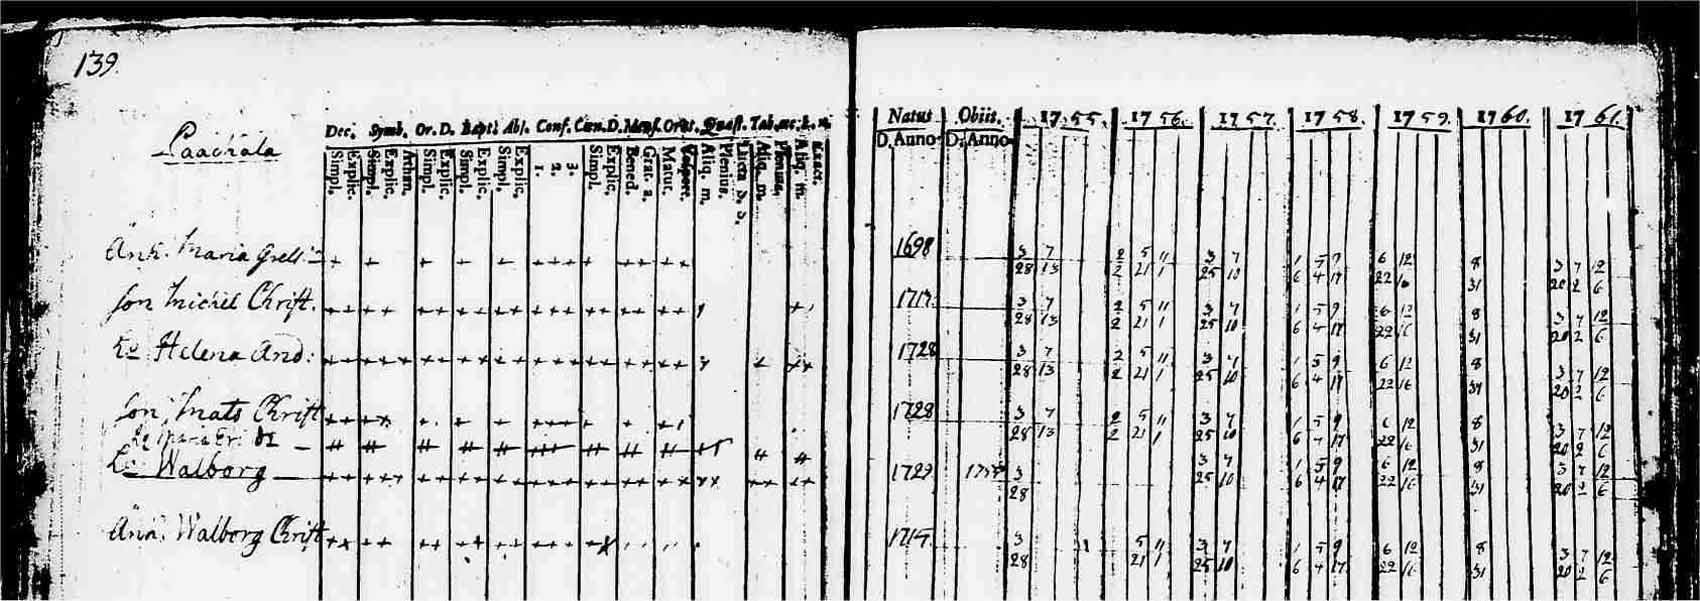 139.
Dec. Symb. Or. D. Bapt. Abs. Conf. Cœn. D. Mens. Orat. Quæst. Tab. œc.
Natus Obiit. 1755. 1756. 1757. 1758. 1759. 1760. 1761.
D. Anno D. Anno
Simpl. Explic. Simpl. Explic. Athan. Simpl. Explic. Simpl. Explic. Simpl. Explic. 1. 2. 3. Simpl. Explic. Bened. Grat. a. Matut. Vesper. Aliq. m. Plenius. Aliq. m. Plenius. Aliq. m. Exact.
Paachala
Ank. Maria Grels: 1698 3/28 7/13 2/2 5/21 11/1 3/25 7/10 1/6 5/4 9/17 6/22 12/16 8/31 3/20 7/2 12/6
Son Michel Christ. 1717 3/28 7/13 2/2 5/21 11/1 3/25 7/10 1/6 5/4 9/17 6/22 12/16 8/31 3/20 7/2 12/6
Hu Helena And: 1728 3/28 7/13 2/2 5/21 11/1 3/25 7/10 1/6 5/4 9/17 6/22 12/16 8/31 3/20 7/2 12/6
Son Mats Christ 1728 3/28 7/13 2/2 5/21 11/1 3/25 7/10 1/6 5/4 9/17 6/22 12/16 8/31 3/20 7/2 12/6
Hu Walborg 1729 3/28
3/25 7/10 1/6 5/4 9/17 6/22 12/16 8/31 3/20 7/2 12/6
Änk. Walborg Christ 1714 3/28 5/21 11/1 3/25 7/10 1/6 5/4 9/17 6/22 12/16 8/31 3/20 7/2 12/6